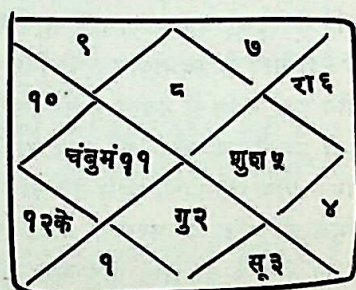 ९ ७
१० ८ रा ६
चंबुमं ११ शुश ५
१२के गु २ ४
१ सू ३